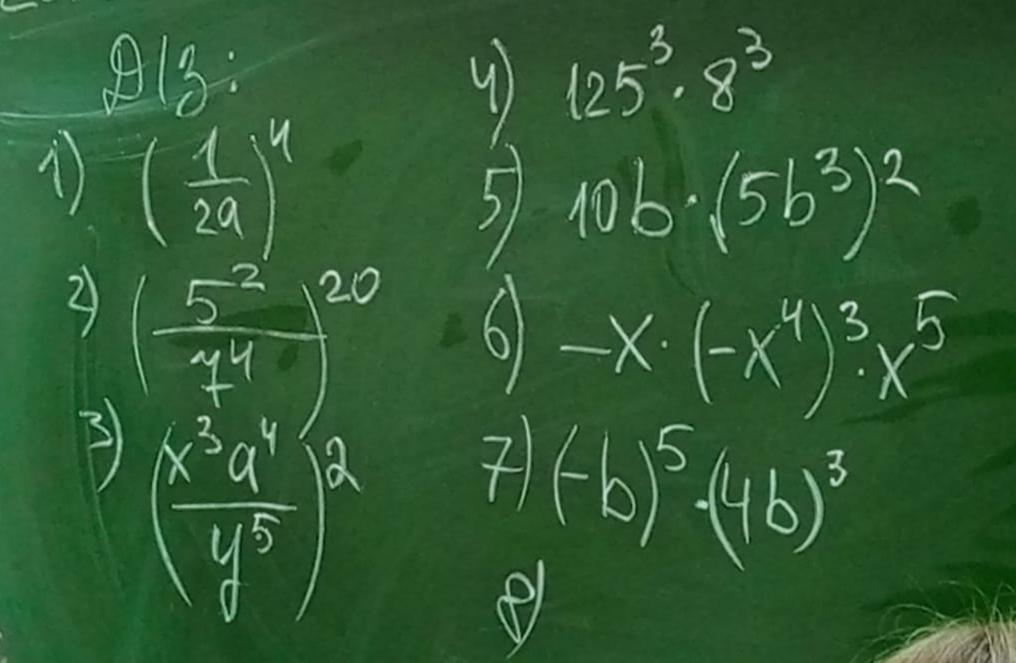 Д/з:
1) (1/2a)^4
2) (5^2/7^4)^20
3) (x^3a^4/y^5)^2
4) 125^3 · 8^3
5) 10b · (5b^3)^2
6) -x · (-x^4)^3 · x^5
7) (-b)^5 · (4b)^3
8)